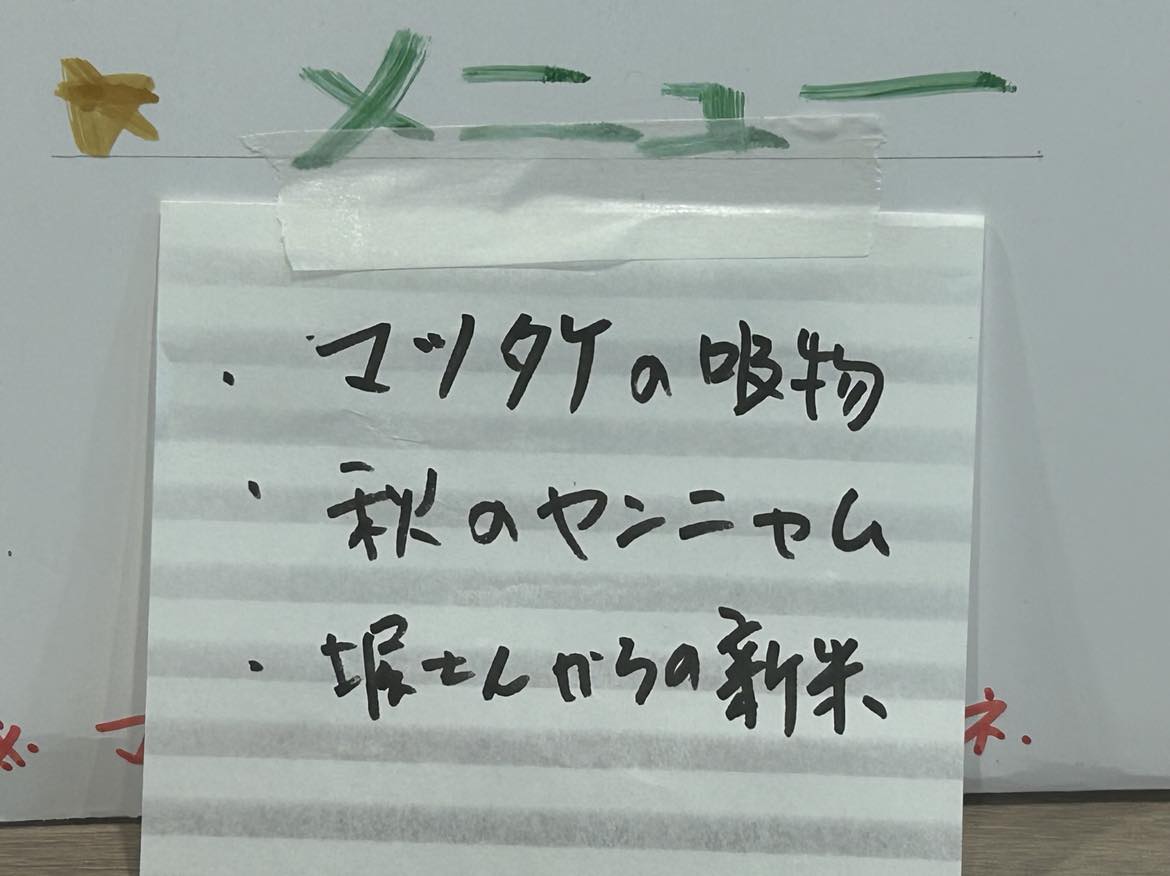 ★ メニュー
・マツタケの吸物
・秋のヤンニャム
・堀さんからの新米